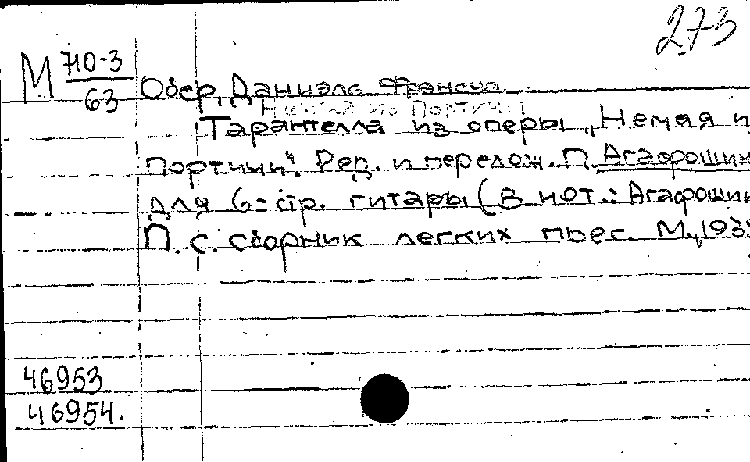 273
М 710-3
63
Обер, Даниэль Франсуа
Немая из Портичи
Тарантелла из оперы „Немая и
портичи". Ред. и перелож. П. Агафошин
для 6=стр. гитары (В нот.: Агафошин
П. С. Сборник легких пьес. М., 193
46953
46954.